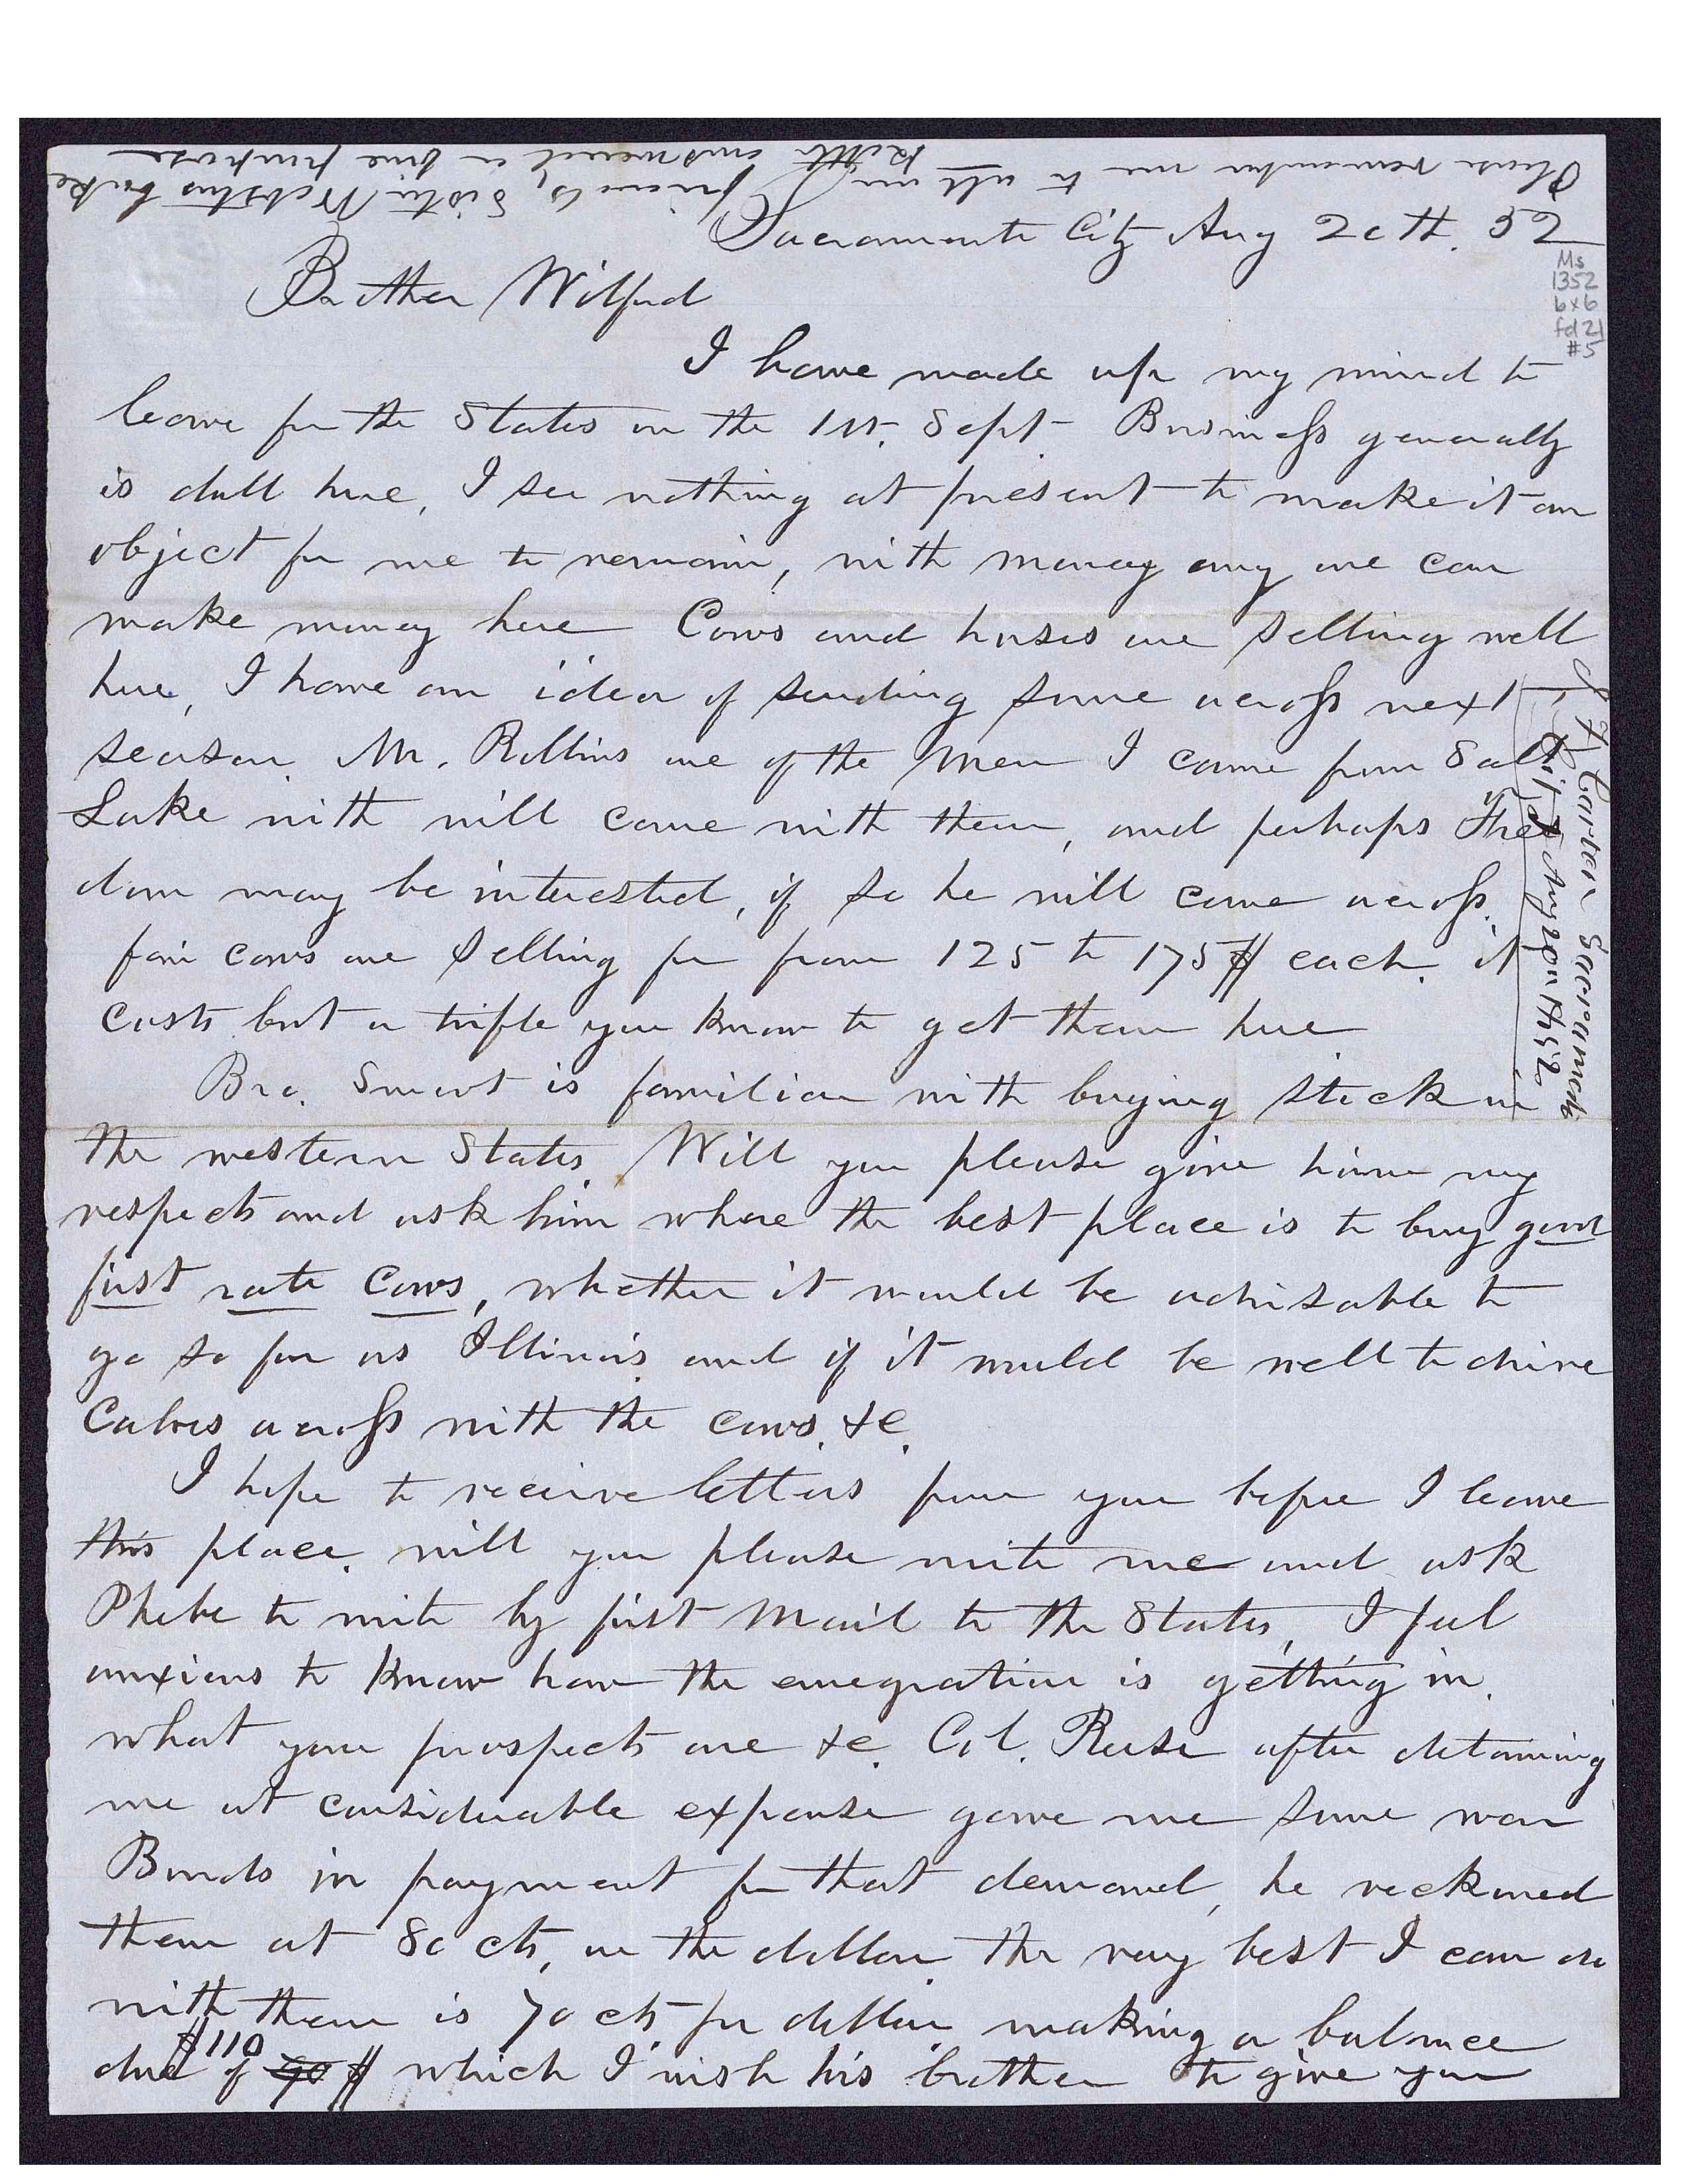 Please remember me to all my kettle answered a fine purpose
friends, Sister Websters bake
Sacramento City Aug 20th. 52
Ms
1352
bx6
fd 21
#5
Brother Wilford
I have made up my mind to
leave for the States on the 1st. Sept- Business generally
is dull here, I see nothing at present to make it an
object for me to remain, with money any one can
make money here Cows and horses are selling well
here, I have an idea of sending some across next
season. Mr. Rollins one of the men I came from Salt
Lake with will come with them, and perhaps Shea
dom may be interested, if so he will come across.
fair cows are selling for from 125 to 175$ each. it
costs but a trifle you know to get them here
Bro. Smoot is familiar with buying stock in
the western States. Will you please give him my
respects and ask him where the best place is to buy good
first rate cows, whether it would be advisable to
go so far as Illinois and if it would be well to drive
Calves across with the cows. &c.
I hope to receive letters from you before I leave
this place. will you please write me and ask
Phebe to write by first Mail to the States, I feel
anxious to know how the emegration is getting in.
what your prospects are &c. Col. Reese after detaining
me at considerable expense gave me some war
Bonds in payment for that demand, he reckoned
them at 80 cts, on the dollar. the very best I can do
with them is 70 cts pr dollar making a balance
$110
due of 90 $ which I wish his brother to give you
I F Carter Sacramento
City Aug 20th 1852